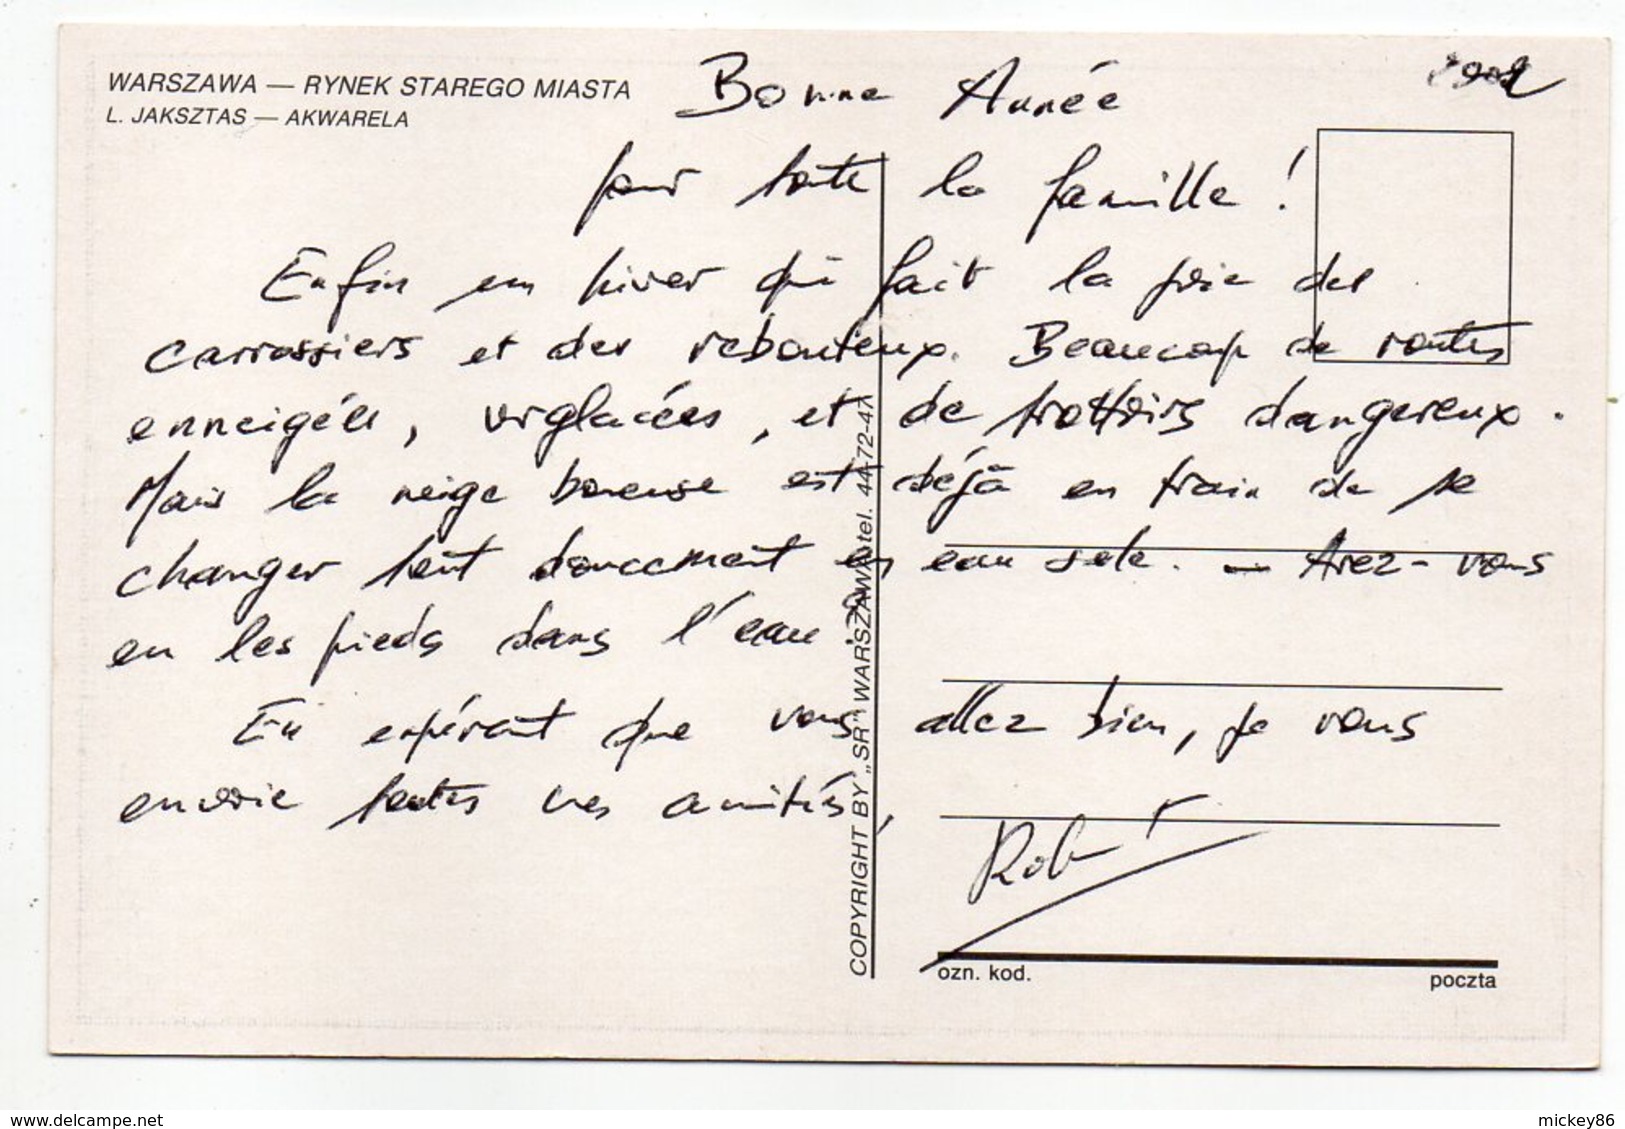 WARSZAWA — RYNEK STAREGO MIASTA
L. JAKSZTAS — AKWARELA
Bonne Année
pour toute la famille !
Enfin un hiver qui fait la joie des
carrossiers et des rebouteux. Beaucoup de routes
enneigées, verglacées, et de trottoirs dangereux.
Mais la neige boueuse est déjà en train de se
changer tout doucement en eau sale. — Avez-vous
eu les pieds dans l'eau ?
En espérant que vous allez bien, je vous
envoie toutes mes amitiés,
COPYRIGHT BY „SR” WARSZAWA tel. 44-72-47
ozn. kod.
poczta
delcampe.net
mickey86